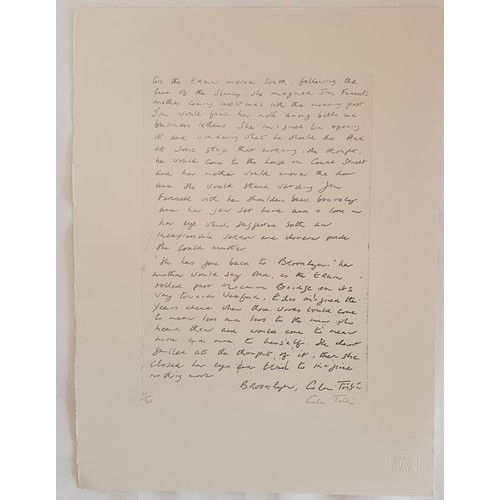 As the train moved south, following the
line of the Slaney, she imagined Jim Farrell's
mother coming upstairs with the morning post
Jim would find her note among bills and
business letters. She imagined him opening
it and wondering what he should do. And
at some stage that morning, she thought,
he would come to the house on Court Street
and her mother would answer the door
and she would stand watching Jim
Farrell with her shoulders back bravely
and her jaw set hard and a look in
her eye which suggested both an
inexpressible sorrow and whatever pride
she could muster
'She has gone back to Brooklyn,' her
mother would say. And, as the train
rolled past Macmine Bridge on its
way towards Wexford, Eilis imagined the
years ahead when those words would come
to mean less and less to the man who
heard them and would come to mean
more and more to herself. She almost
smiled at the thought of it, then she
closed her eyes and tried to imagine
nothing more
Brooklyn, Colm Tóibín
Colm Tóibín